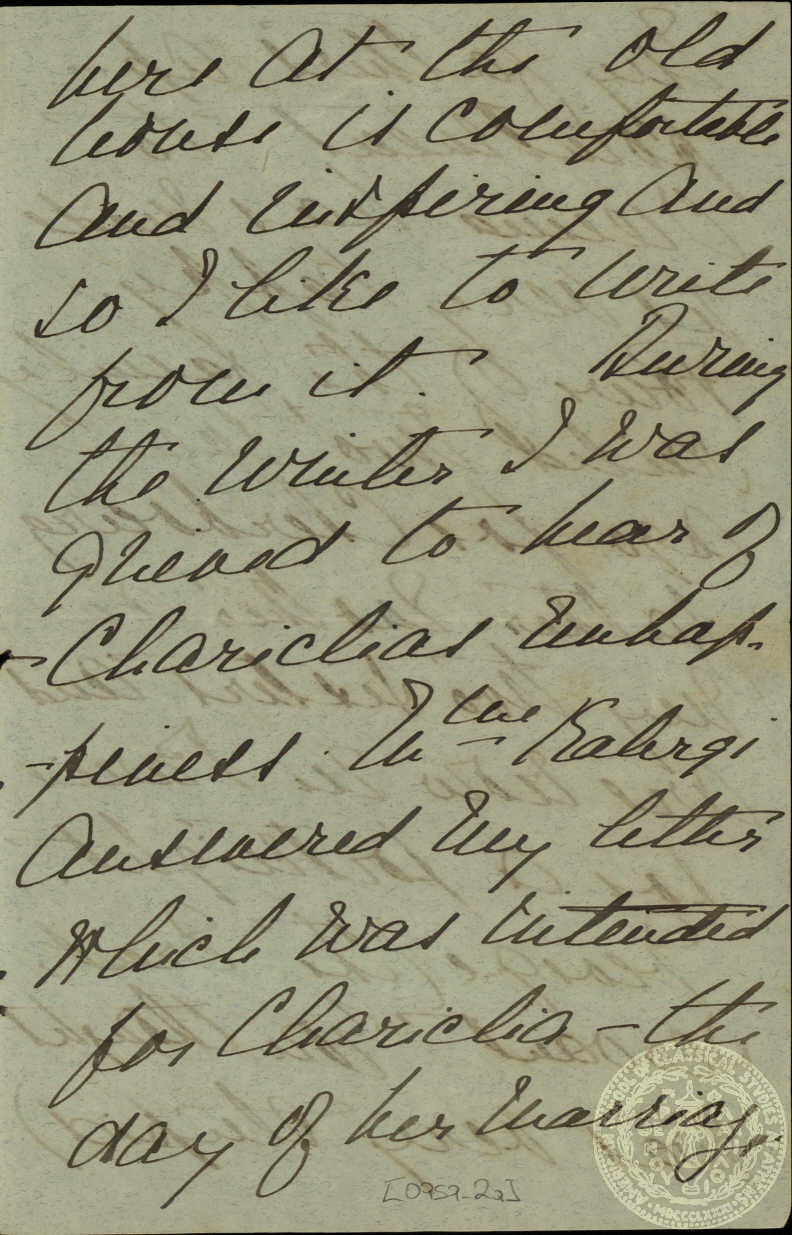 here at the old
house is comfortable
and inspiring and
so I like to write
from it. During
the winter I was
grieved to hear of
Chariclias unhap-
-piness. Mme Kalergi
answered my letter
which was intended
for Chariclia – the
day of her marriag.
[0959-2a]
AMERICAN SCHOOL OF CLASSICAL STUDIES AT ATHENS
MDCCCLXXXI